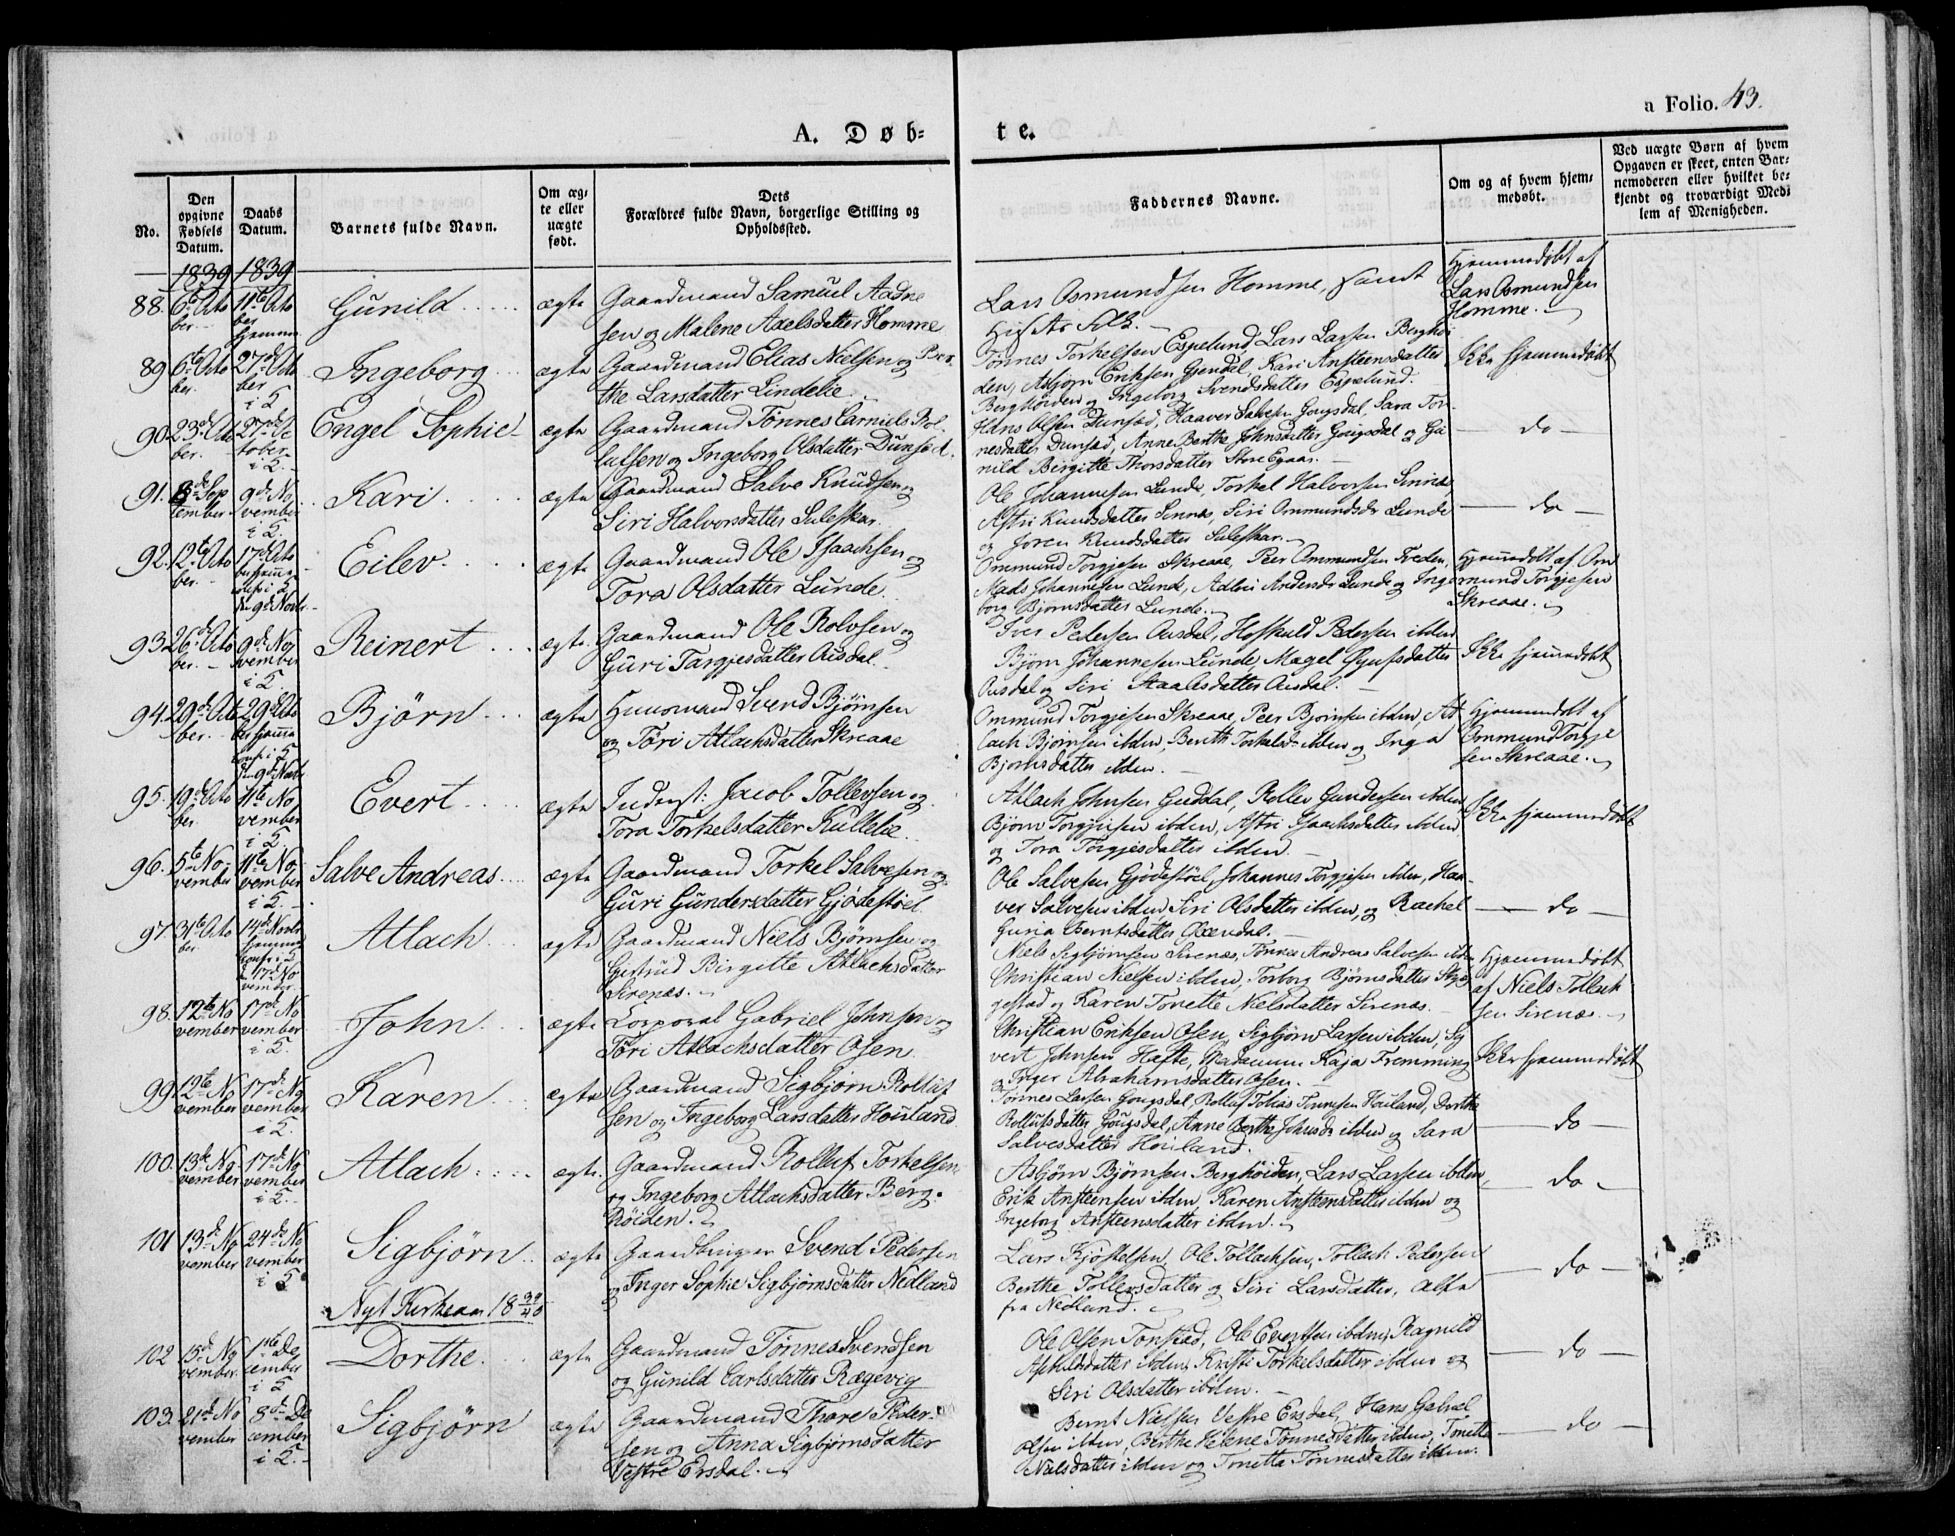 a Folio. 43.
A. Døb-
te.
No.
Den
opgivne
Fødsels
Datum.
Daabs
Datum.
Barnets fulde Navn.
Om æg-
te eller
uægte
født.
Dets
Forældres fulde Navn, borgerlige Stilling og
Opholdssted.
Faddernes Navne.
Om og af hvem hjem-
medøbt.
Ved uægte Børn af hvem
Opgaven er skeet, enten Bar-
nemoderen eller hvilket be-
kjendt og troværdigt Med-
lem af Menigheden.
1839 1839
88. 6te Octo
ber
11te Octo
ber
hjemme
Gunild
ægte
Gaardmand Samuel Aadne
sen og Malene Axelsdatter Homme
Lars Osmundsen Homme, samt
Hjemmedøbt af
Lars Osmundsen
Homme.
89 6te Octo
ber.
27de Octo
ber
i K
Ingeborg
ægte
Gaardmand Elias Nielsen og Ber
the Larsdatter Lindelie
Tønnes Torkelsen Espelund, Lars Larsen Berghøi
den, Asbjørn Eriksen Gjendal, Kari Ansteensdatter
Berghøiden og Ingeborg Svendsdatter Espelund.
Ikke hjemmedøbt
90. 23de Octo
ber.
27de Oc
tober
i K.
Engel Sophie
ægte
Gaardmand Tønnes Corneliis Rol
lufsen og Ingeborg Olsdatter Dunsød.
Hans Olsen Dunsød, Haaver Salvesen Gougsdal, Sara Tøn-
nesdatter Dunsød, Anne Berthe Johnsdatter Gougsdal og Gu
nild Birgitte Thorsdatter Store Egaas.
do
91. 8de Sep
tember
9de No
vember
i K.
Kari
ægte
Gaardmand Salve Knudsen og
Siri Halvorsdatter Suleskar.
Ole Johannesen Lunde, Torkel Halvorsen Sinnes
Astri Knudsdatter Sinnes, Siri Ommundsdr Lunde
og Joren Knudsdatter Suleskar.
do
92. 12te Octo
ber.
17de Octo
ber hjemme
conf. i K
den 9de Novbr.
Eilev
ægte
Gaardmand Ole Isaachsen og
Tora Olsdatter Lunde.
Ommund Torgjesen Skreaae, Peer Ommundsen Freden,
Mads Johannesen Lunde, Adlei Andersdr Lunde og Inge
borg Bjørnsdatter Lunde.
Hjemmedøbt af Om
mund Torgjesen
Skreaae.
93. 26de Octo
ber.
9de No
vember
i K.
Reinert
ægte.
Gaardmand Ole Rolvsen og
Guri Targjesdatter Ousdal.
Iver Pedersen Ousdal, Hoskuld Pedersen ibdem
Bjørn Johannesen Lunde, Magel Øyufsdatter
Ousdal og Siri Staalesdatter Ousdal.
Ikke hjemmedøbt
94. 29de Octo
ber.
29de Octo
ber hjemme
conf. i K
den 9de Novbr
Bjørn
ægte
Huusmand Svend Bjørnsen
og Tori Atlachsdatter Skreaae
Ommund Torgjesen Skreaae, Peer Bjørnsen ibdem, At
lach Bjørnsen ibdem, Berith Torkelsdr ibdem og Inga
Bjørnsdatter ibdem.
Hjemmedøbt af
Ommund Torgje
sen Skreaae.
95. 19de Octo
ber.
11te No
vember
i K
Evert
ægte
Inderst: Jacob Tollevsen og
Tora Torkelsdatter Kullelie.
Atlach Johnsen Guddal, Rollev Gundersen ibdem,
Bjørn Torgjesen ibdem, Astri Isaachsdatter ibdem
og Tora Torgjesdatter ibdem.
Ikke hjemmedøbt
96. 5te No
vember
11te No
vember
i K.
Salve Andreas.
ægte
Gaardmand Torkel Salvesen og
Guri Gundersdatter Gjødestøel.
Ole Salvesen Gjødestøel, Johannes Torgjesen ibdem, Haa
ver Salvesen ibdem, Siri Olsdatter ibdem, og Rachel
Guria Berntsdatter Oxendal.
do
97. 31te Octo
ber
14de Novbr
hjemme
conf. i K
d. 17de No
vember
Atlach
ægte
Gaardmand Niels Bjørnsen og
Gertrud Birgitte Atlachsdatter
Sirenæs.
Niels Sigbjørnsen Sirenæs, Tønnes Andreas Salvesen ibdm
Christian Nielsen ibdem, Torborg Bjørnsdatter Skæg
gestad og Karen Tonette Nielsdatter Sirenæs.
Hjemmedøbt
af Niels Tollach
sen Sirenæs.
98. 12te No
vember
17de No
vember
i K.
John
ægte
Corporal Gabriel Johnsen og
Tori Atlachsdatter Osen
Christian Eriksen Osen, Sigbjørn Larsen ibdem, Sy
vert Johnsen Hafte, Madamme Kaja Fremming
og Inger Abrahamsdatter Osen.
Ikke hjemmedøbt
99. 12te No
vember
17de No
vember
i K.
Karen
ægte
Gaardmand Sigbjørn Rolluf
sen og Ingeborg Larsdatter Houland
Tønnes Larsen Gougsdal, Rolluf Tobias Tønnesen Houland, Dorthe
Rollufsdatter Gougsdal, Anne Berthe Johnsdr ibdem og Sara
Salvesdatter Houland.
do
100. 13de No
vember
17de No
vember
i K.
Atlach
ægte.
Gaardmand Rolluf Torkelsen
og Ingeborg Atlachsdatter Berg-
høiden.
Asbjørn Bjørnsen Berghøiden, Lars Larsen ibdem,
Erik Ansteensen ibdem, Karen Ansteensdatter ibdem og
Ingeborg Ansteensdatter ibdem.
do
101 13de No
vember
24de No
vember
i K
Sigbjørn
ægte
Gaardbruger Svend Pedersen
og Inger Sophie Sigbjørnsdatter Nedland
Lars Kjøstelsen, Ole Tollachsen, Tollach Pedersen
Berthe Tollevsdatter og Siri Larsdatter, alle
fra Nedland.
do
Nyt Kirkeaar 18 39/40
102 15de No
vember.
1ste De
cember
i K
Dorthe.
ægte
Gaardmand Tønnes Svendsen
og Gunild Carlsdatter Rægevig
Ole Olsen Tonstad, Ole Evertsen ibdem, Ragnild
Askildsdatter ibdem, Kristi Torkelsdatter ibdem og
Siri Olsdatter ibdem.
do
103. 21de No
vember
8de De
cember
i K.
Sigbjørn
ægte
Gaardmand Thore Peder-
sen og Anna Sigbjørnsdatter
Vestre Ersdal.
Bernt Nielsen Vestre Ersdal, Hans Gabriel
Olsen ibdem, Berthe Helene Tønnesdatter ibdem, Tonette
Nielsdatter ibdem og Tonetta Tønnesdatter ibdem.
do